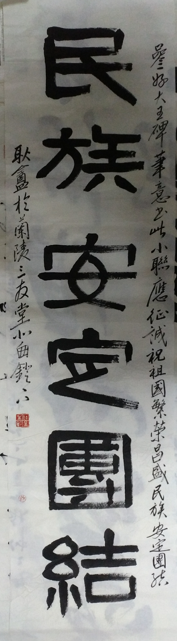 民族安定團結
參好大王碑筆意書此小聯應征誠祝祖國繁榮昌盛民族安定團結
耿鑫於蘭陵三友堂小西鐙下